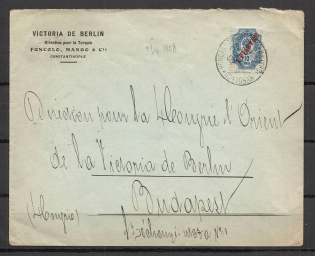 VICTORIA DE BERLIN
Direction pour la Turquie
FONCOLO, MANGO & Cie
CONSTANTINOPLE
1908
10
Direction pour la Hongrie l'Orient
de la Victoria de Berlin
Budapest
(Hongrie)
Széchenyi-utcza No 1